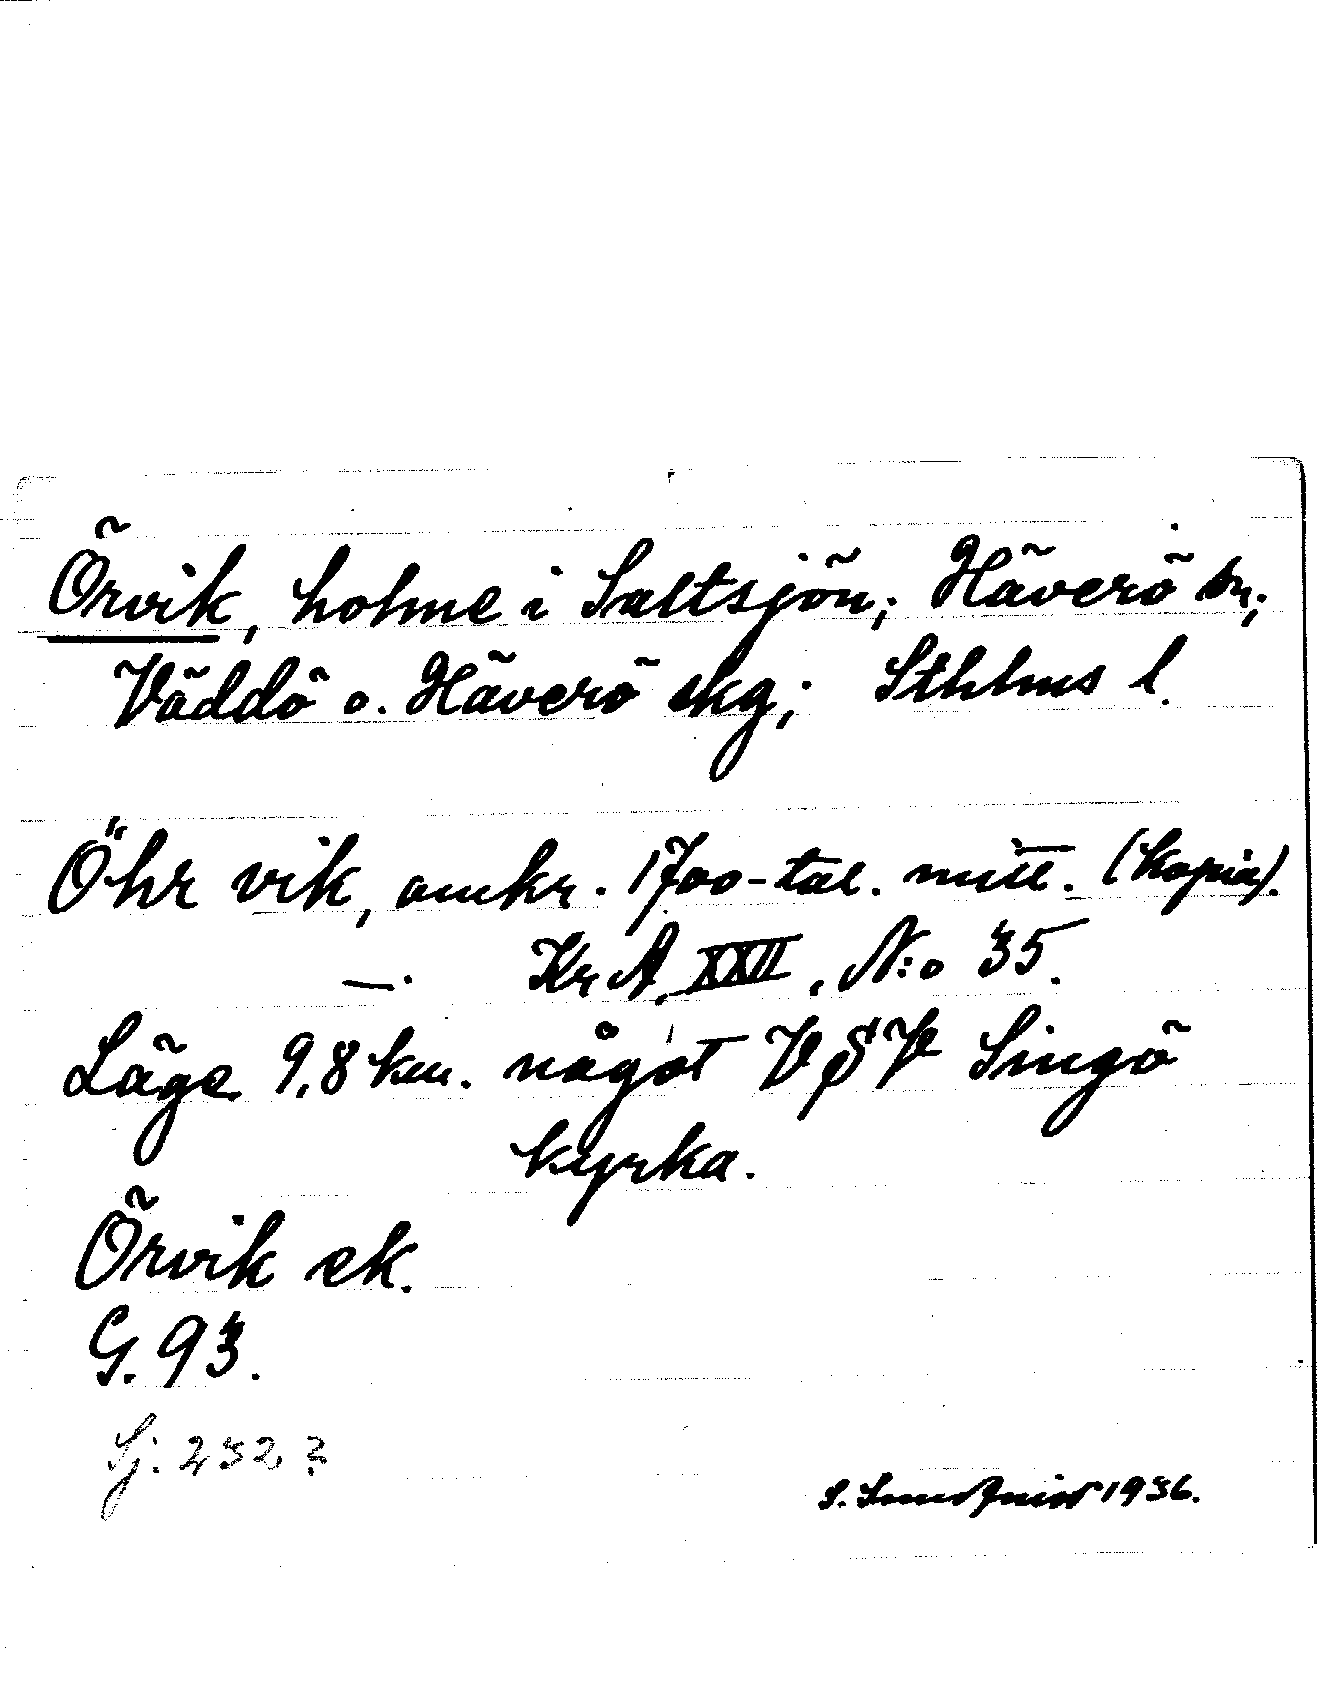 Örvik, holme i Saltsjön; Häverö sn;
Väddö o. Häverö skg; Sthlms l.
Öhr vik, omkr. 1700-tal. mitt. (kopia).
—. KrA, XXII, N:o 35.
Läge 9,8 km. något VSV Singö
kyrka.
Örvik ek.
G. 93.
Sj. 232?
S. 1936.